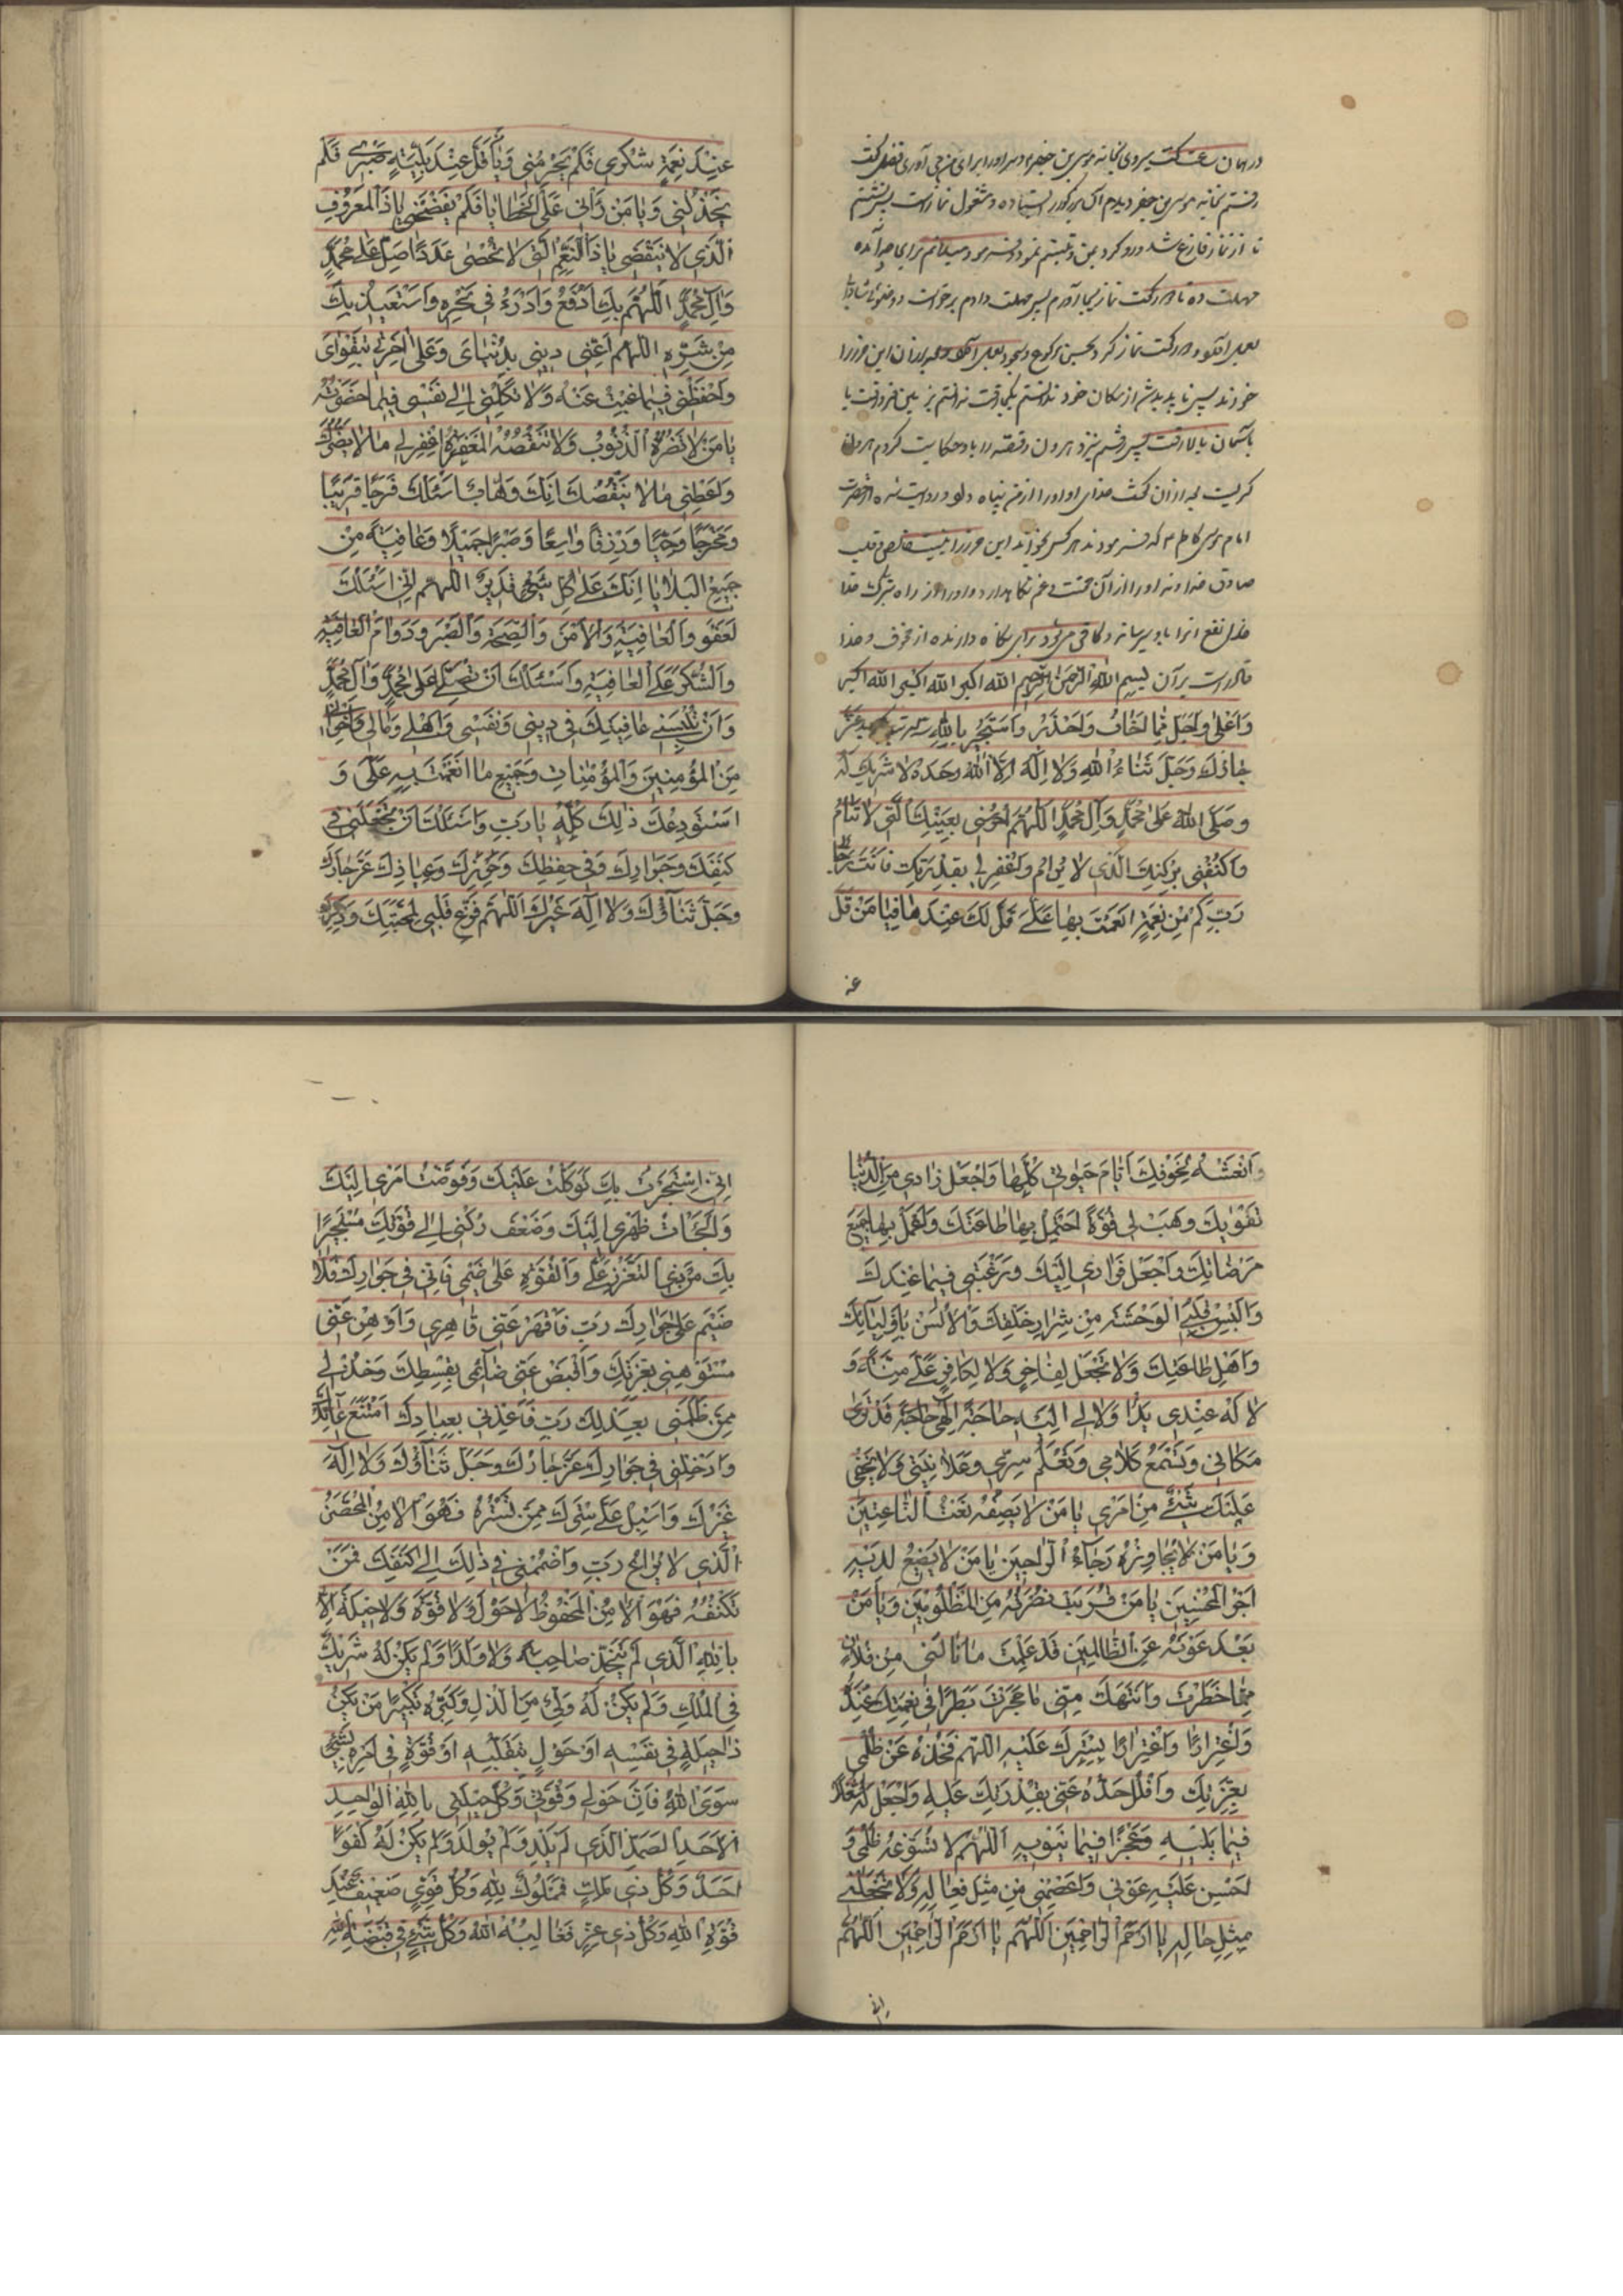 در همان ساعت گفت میروی بخانه موسی بن جعفر و سر او را برای من می آوری فضل گفت
رفتم بخانه موسی بن جعفر دیدم آن بزرگوار ایستاده و مشغول نماز است پس نشستم
تا از نماز فارغ شد و رو کرد بمن و تبسم نمود و فرمود میدانم برای چه آمده
مهلت ده تا دو رکعت نماز بجا آورم پس مهلت دادم برخواست و وضوی
بعد از آن دو رکعت نماز کرد بحسن رکوع و سجود بعد از آن این حرز را
خواندند پس ناپدید شد از مکان خود ندانستم بکجا رفت ندانستم زمین فرو رفت یا
بآسمان بالا رفت پس رفتم بنزد هرون و قصه را باو حکایت کردم هرون
گریست بعد از آن گفت خدای او او را از من پناه داد و روایت شده از حضرت
امام موسی کاظم ع که فرمودند هر کس بخواند این حرز را بنیت خالص و قلب
صادق خداوند او را از آن محنت و غم نگاه دارد و او را از راه
خدا نفع آنرا باو برساند و کافی میشود برای نگاه دارنده از خوف و خدا
قادر است بر آن بسم الله الرحمن الرحیم الله اکبر الله اکبر الله اکبر
وَاَعْلیٰ وَاَجَلّ مِمّا اَخافُ وَاَحْذَرُ وَاَسْتَجیرُ بِاللهِ عَزَّ
جارُكَ وَجَلَّ ثَناءُ اللهِ وَلا اِلٰهَ اِلّا اللهُ وَحْدَهُ لا شَریكَ لَهُ
وَصَلَّی اللهُ عَلیٰ مُحَمَّدٍ وَآلِ مُحَمَّدٍ اَللّهُمَّ احْرُسْنی بِعَیْنِكَ الَّتی لا تَنامُ
وَاكْنُفْنی بِرُكْنِكَ الَّذی لا یُرامُ وَاغْفِرْ لی بِقُدْرَتِكَ فَاَنْتَ رَجائی
رَبِّ كَمْ مِنْ نِعْمَةٍ اَنْعَمْتَ بِها عَلَیَّ قَلَّ لَكَ عِنْدَها فَیا مَنْ قَلَّ
عند
عِنْدَ نِعْمَةٍ شُكْری فَلَمْ یَحْرِمْنی وَیا مَنْ قَلَّ عِنْدَ بَلِیَّةٍ صَبْری فَلَمْ
یَخْذُلْنی وَیا مَنْ رَآنی عَلَی الْخَطایا فَلَمْ یَفْضَحْنی یا ذَا الْمَعْرُوفِ
الَّذی لا یَنْقَضی یا ذَا النِّعَمِ الَّتی لا تُحْصیٰ عَدَدًا صَلِّ عَلیٰ مُحَمَّدٍ
وَآلِ مُحَمَّدٍ اَللّهُمَّ بِكَ اَدْفَعُ وَاَدْرَءُ فی نَحْرِهِ وَاَسْتَعیذُ بِكَ
مِنْ شَرِّهِ اللّهُمَّ اَعِنّی دینی بِدُنْیایَ وَعَلیٰ آخِرَتی بِتَقْوایَ
وَاحْفَظْنی فیما غِبْتُ عَنْهُ وَلا تَكِلْنی اِلیٰ نَفْسی فیما حَضَرْتُهُ
یا مَنْ لا تَضُرُّهُ الذُّنُوبُ وَلا تَنْقُصُهُ الْمَغْفِرَةُ اِغْفِرْ لی ما لا یَضُرُّكَ
وَاَعْطِنی ما لا یَنْقُصُكَ اِنَّكَ وَهّابٌ اَسْئَلُكَ فَرَجًا قَریبًا
وَمَخْرَجًا وَرِزْقًا واسِعًا وَصَبْرًا جَمیلًا وَعافِیَةً مِنْ
جَمیعِ الْبَلایا اِنَّكَ عَلیٰ كُلِّ شَیْءٍ قَدیرٌ اَللّهُمَّ اِنّی اَسْئَلُكَ
لْعَفْوَ وَالْعافِیَةَ وَالْاَمْنَ وَالصِّحَّةَ وَالصَّبْرَ وَدَوامَ الْعافِیَةِ
وَالشُّكْرَ عَلَی الْعافِیَةِ وَاَسْئَلُكَ اَنْ تُصَلِّیَ عَلیٰ مُحَمَّدٍ وَآلِ مُحَمَّدٍ
وَاَنْ تُلْبِسَنی عافِیَتَكَ فی دینی وَنَفْسی وَاَهْلی وَمالی وَاِخْوانی
مِنَ الْمُؤْمِنینَ وَالْمُؤْمِناتِ وَجَمیعِ ما اَنْعَمْتَ بِهِ عَلَیَّ وَ
اَسْتَوْدِعُكَ ذٰلِكَ كُلَّهُ یا رَبِّ وَاَسْئَلُكَ اَنْ تَجْعَلَنی فی
كَنَفِكَ وَجَوارِكَ وَفی حِفْظِكَ وَحِرْزِكَ وَعِیاذِكَ عَزَّ جارُكَ
وَجَلَّ ثَناؤُكَ وَلا اِلٰهَ غَیْرُكَ اَللّهُمَّ فَرِّغْ قَلْبی لِمَحَبَّتِكَ وَذِكْرِكَ
وَانْعَشْهُ بِخَوْفِكَ اَیّامَ حَیٰوتی كُلِّها وَاجْعَلْ زادی مِنَ الدُّنْیا
تَقْوٰیكَ وَهَبْ لی قُوَّةً اَحْتَمِلُ بِها طاعَتَكَ وَاَعْمَلُ بِها جَمیعَ
مَرْضاتِكَ وَاجْعَلْ فِراری اِلَیْكَ وَرَغْبَتی فیما عِنْدَكَ
وَاَلْبِسْ قَلْبِیَ الْوَحْشَةَ مِنْ شِرارِ خَلْقِكَ وَالْاُنْسَ بِاَوْلِیآئِكَ
وَاَهْلِ طاعَتِكَ وَلا تَجْعَلْ لِفاجِرٍ وَلا لِكافِرٍ عَلَیَّ مِنَّةً وَ
لا لَهُ عِنْدی یَدًا وَلا لی اِلَیْهِ حاجَةً اِلٰهی حاجَةً قَدْ تَریٰ
مَكانی وَتَسْمَعُ كَلامی وَتَعْلَمُ سِرّی وَعَلانِیَتی وَلا یَخْفیٰ
عَلَیْكَ شَیْءٌ مِنْ اَمْری یا مَنْ لا یَصِفُهُ نَعْتُ النّاعِتینَ
وَیا مَنْ لا یُجاوِزُهُ رَجآءُ الرّاجینَ یا مَنْ لا یَضیعُ لَدَیْهِ
اَجْرُ الْمُحْسِنینَ یا مَنْ قَرُبَتْ نُصْرَتُهُ مِنَ الْمَظْلُومینَ وَیا مَنْ
بَعُدَ عَوْنُهُ عَنِ الظّالِمینَ قَدْ عَلِمْتَ ما نالَنی مِنْ فُلانٍ
مِمّا حَظَرْتَ وَانْتَهَكَ مِنّی ما حَجَرْتَ بَطَرًا فی نِعْمَتِكَ عِنْدَهُ
وَاغْتِرارًا بِسِتْرِكَ عَلَیْهِ اَللّهُمَّ فَخُذْهُ عَنْ ظُلْمی
بِعِزَّتِكَ وَافْلُلْ حَدَّهُ عَنّی بِقُدْرَتِكَ عَلَیْهِ وَاجْعَلْ لَهُ شُغْلًا
فیما یَلیهِ وَعَجْزًا فیما یَنْویهِ اَللّهُمَّ لا تُسَوِّغْهُ ظُلْمی وَ
اَحْسِنْ عَلَیْهِ عَوْنی وَاعْصِمْنی مِنْ مِثْلِ فِعالِهِ وَلا تَجْعَلْنی
مِثْلِ حالِهِ یا اَرْحَمَ الرّاحِمینَ اَللّهُمَّ یا اَرْحَمَ الرّاحِمینَ اَللّهُمَّ
انی
اِنّی اسْتَجَرْتُ بِكَ تَوَكَّلْتُ عَلَیْكَ وَفَوَّضْتُ اَمْری اِلَیْكَ
وَاَلْجَاْتُ ظَهْری اِلَیْكَ وَضَعْفَ رُكْنی اِلیٰ قُوَّتِكَ مُسْتَجیرًا
بِكَ مِنْ ذِی التَّعَزُّزِ عَلَیَّ وَالْقُوَّةِ عَلیٰ ضَیْمی فَاِنّی فی جَوارِكَ فَلا
ضَیْمَ عَلیٰ جَوارِكَ رَبِّ فَاقْهَرْ عَنّی قاهِری وَاَوْهِنْ عَنّی
مُسْتَوْهِنی بِعِزَّتِكَ وَاقْبِضْ عَنّی ضآئِمی بِقِسْطِكَ وَخُذْ لی
مِمَّنْ ظَلَمَنی بِعَدْلِكَ رَبِّ فَاَعِذْنی بِعِیاذِكَ امْتَنَعَ عآئِذُكَ
وَاَدْخِلْنی فی جَوارِكَ عَزَّ جارُكَ وَجَلَّ ثَناؤُكَ وَلا اِلٰهَ
غَیْرُكَ وَاَسْبِلْ عَلَیَّ سِتْرَكَ فَمَنْ تَسْتُرُهُ فَهُوَ الْاٰمِنُ الْمُحْصَنُ
الَّذی لا یُراعُ رَبِّ وَاضْمُمْنی فی ذٰلِكَ اِلیٰ كَنَفِكَ فَمَنْ
تَكْنُفُهُ فَهُوَ الْاٰمِنُ الْمَحْفُوظُ لا حَوْلَ وَلا قُوَّةَ وَلا حیلَةَ اِلّا
بِاللهِ الَّذی لَمْ یَتَّخِذْ صاحِبَةً وَلا وَلَدًا وَلَمْ یَكُنْ لَهُ شَریكٌ
فِی الْمُلْكِ وَلَمْ یَكُنْ لَهُ وَلِیٌّ مِنَ الذُّلِّ وَكَبِّرْهُ تَكْبیرًا مَنْ یَكُنْ
ذا حیلَةٍ فی نَفْسِهِ اَوْ حَوْلٍ بِتَقَلُّبِهِ اَوْ قُوَّةٍ فی اَمْرِهِ بِشَیْءٍ
سِوَی اللهِ فَاِنَّ حَوْلی وَقُوَّتی وَكُلَّ حیلَتی بِاللهِ الْواحِدِ
الْاَحَدِ الصَّمَدِ الَّذی لَمْ یَلِدْ وَلَمْ یُولَدْ وَلَمْ یَكُنْ لَهُ كُفُوًا
اَحَدٌ وَكُلُّ ذی مُلْكٍ فَمَمْلُوكٌ لِلّهِ وَكُلُّ قَوِیٍّ ضَعیفٌ عِنْدَ
قُوَّةِ اللهِ وَكُلُّ ذی عِزٍّ فَغالِبُهُ اللهُ وَكُلُّ شَیْءٍ فی قَبْضَةِ اللهِ